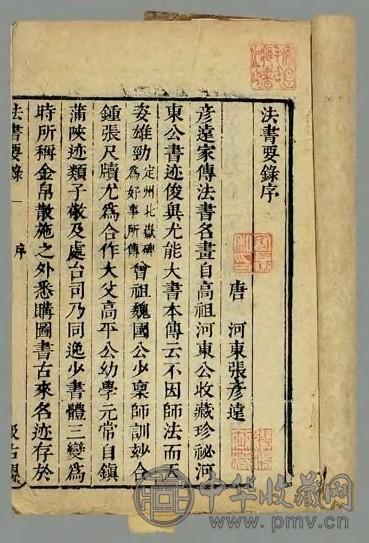 法書要錄序
唐 河東張彥遠
彥遠家傳法書名畫自高祖河東公收藏珍祕河
東公書迹俊異尤能大書本傳云不因師法而天
姿雄勁定州北嶽碑為好事所傳曾祖魏國公少稟師訓玅合
鍾張尺牘尤為合作大父高平公幼學元常自鎮
蒲陝迹類子敬及處台司乃同逸少書體三變為
時所稱金帛散施之外悉購圖書古來名迹存於
法書要錄 序 汲古閣
中华收藏网
www.pmv.cn